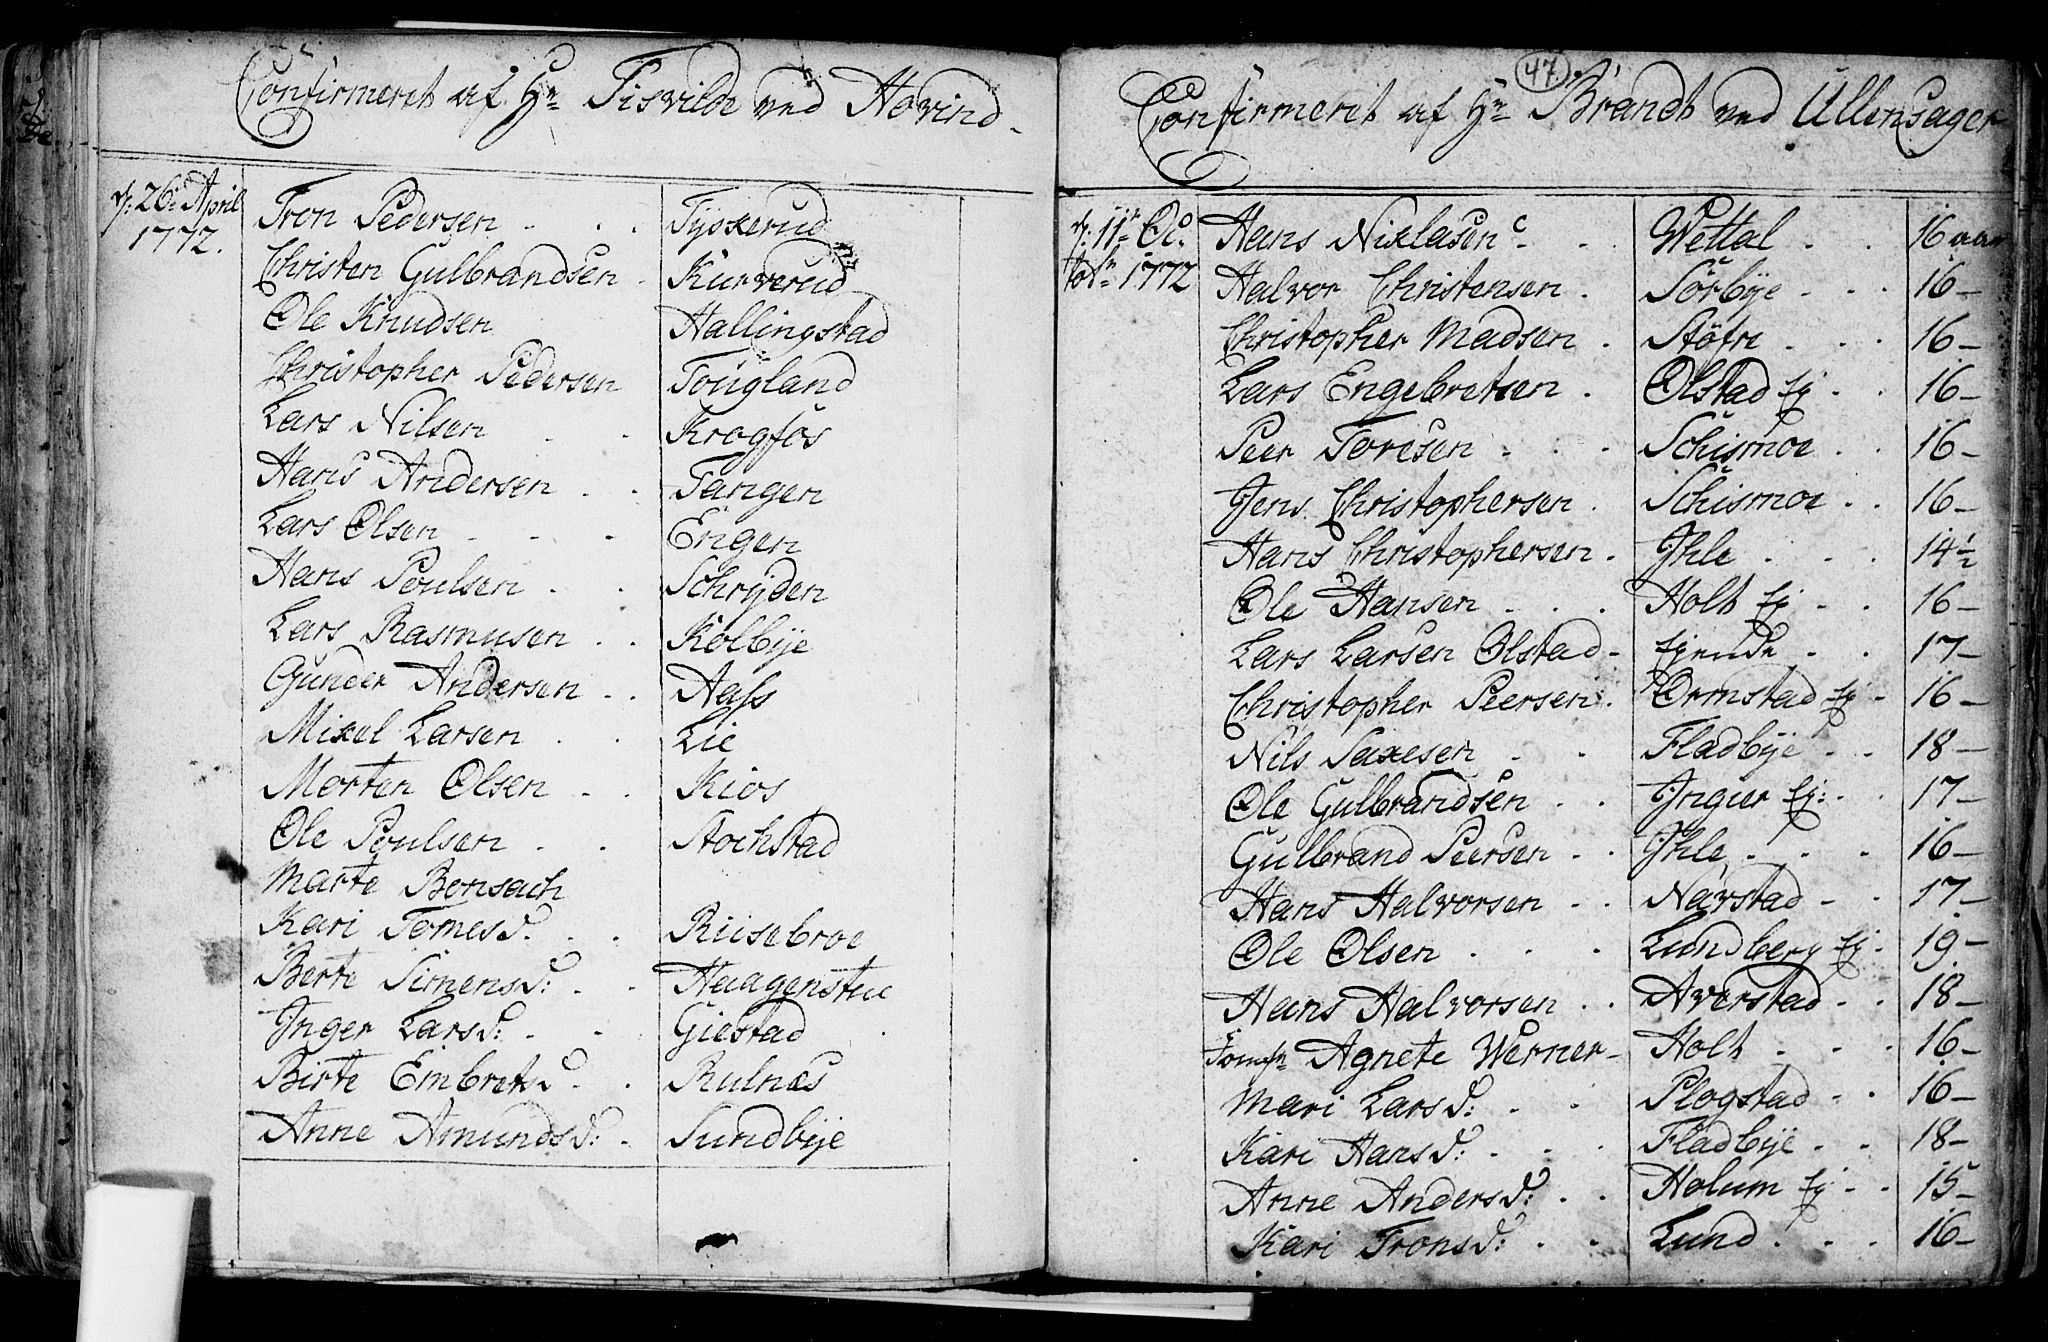 Confirmeret af Hr Tisvilde ved Hovind
d: 26: April 1772.
Tron Pedersen Tyskerud
Christen Gulbrandsen Kurverud
Ole Knudsen Hallingstad
Christopher Pedersen Tougland
Lars Nilsen Krogfos
Hans Andersen Tangen
Lars Olsen Engen
Hans Poulsen Schrijden
Lars Rasmusen Kolbije
Gunder Andersen Aass
Mikel Larsen Lie
Morten Olsen Kios
Ole Poulsen Stochstad
Marte Bonsach
Kari Tomesd. Riisebroe
Berte Simensd: Haagenstue
Inger Larsd: Giestad
Birte Embretsd. Rulnæs
Anne Amundsd: Sundbije
47.
Confirmerit af Hr Brandt ved Ullensager
d: 11te Octobr 1772
Hans Niklasen Wettal 16 aar
Halvor Christensen Sörbije 16
Christopher Madsen Stöfre 16
Lars Engebretsen Olstad Ej 16
Peer Toresen Schismoe 16
Jens Christophersen Schismoe 16
Hans Christophersen Ihle 14½
Ole Hansen Holt Ej 16
Lars Larsen Olstad Ejende 17
Christopher Peersen Ormstad Ej 16
Nils Saxesen Fladbije 18
Ole Gulbrandsen Ingier Ej: 17
Gulbrand Peersen Ihle 16
Hans Halvorsen Nävstad 17
Ole Olsen Lundberg Ej 19
Hans Halvorsen Averstad 18
Jomfr Agnete Werner Holt 16
Mari Larsd: Plogstad 16
Kari Hansd: Fladbije 18
Anne Andersd: Holum Ej 15
Kari Tronsd: Lund 16